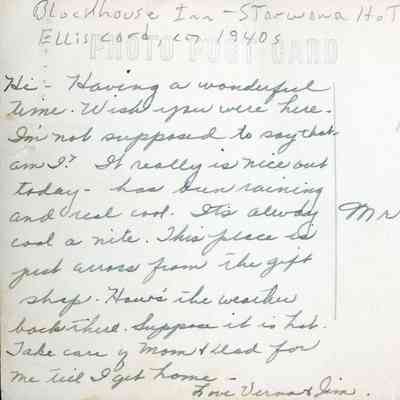 Blockhouse Inn - Starwana Hot
Ellicard, ca 1940s
PHOTO POST CARD
Hi - Having a wonderful
time. Wish you were here.
I'm not supposed to say that
am I? It really is nice out
today - has been raining
and real cool. It's alway
cool a nite. This place is
just across from the gift
shop. How's the weather
back there. Suppose it is hot.
Take care of Mom & Dad for
me till I get home -
Love Verna & Jim.
Mr